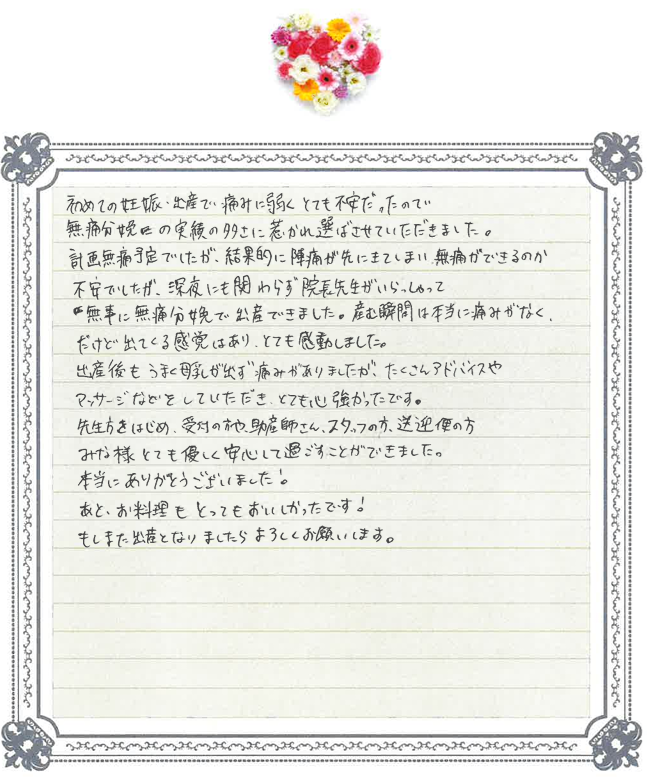 初めての妊娠・出産で痛みに弱くとても不安だったので
無痛分娩の実績の多さに惹かれ選ばさせていただきました。
計画無痛予定でしたが、結果的に陣痛が先にきてしまい無痛ができるのか
不安でしたが、深夜にも関わらず院長先生がいらっしゃって
無事に無痛分娩で出産できました。産む瞬間は本当に痛みがなく、
だけど出てくる感覚はあり、とても感動しました。
出産後もうまく母乳が出ず痛みがありましたが、たくさんアドバイスや
マッサージなどをしていただき、とても心強かったです。
先生方をはじめ、受付の方や、助産師さん、スタッフの方、送迎便の方
みな様とても優しく安心して過ごすことができました。
本当にありがとうございました！。
あと、お料理もとってもおいしかったです！
もしまた出産となりましたらよろしくお願いします。